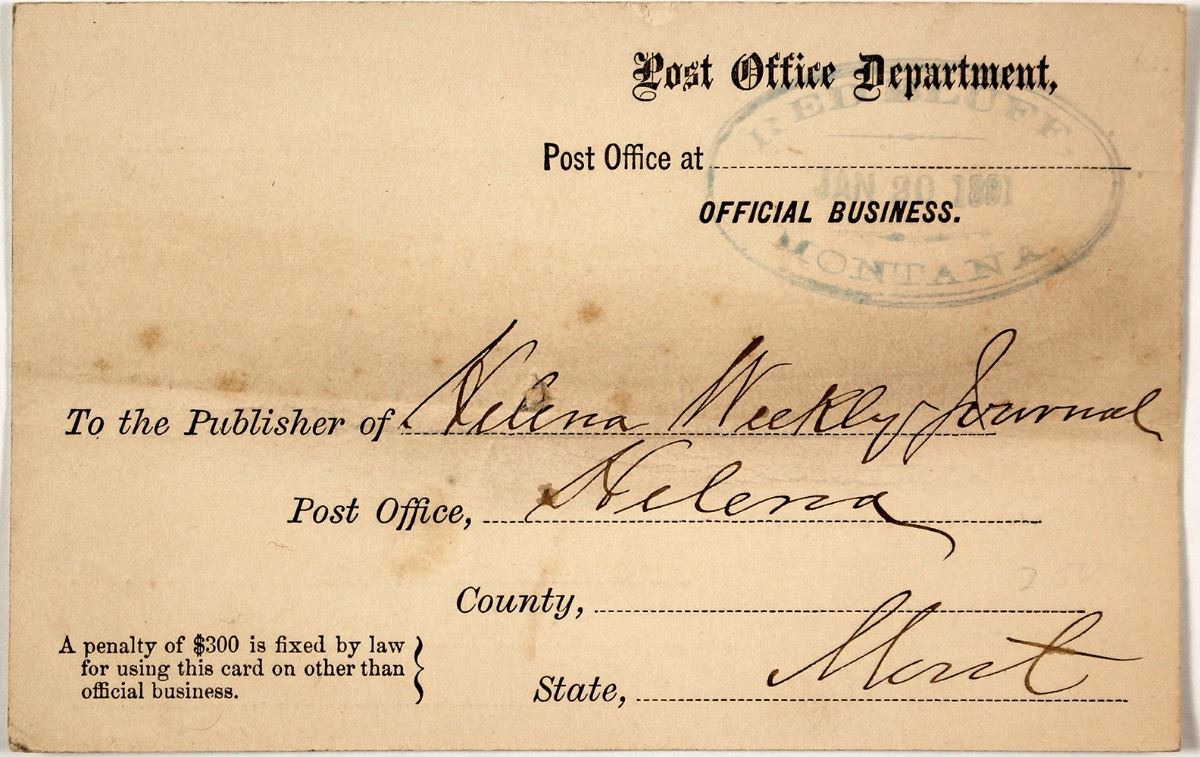 Post Office Department,
Post Office at
RED BLUFF
JAN 30 1891
MONTANA
OFFICIAL BUSINESS.
To the Publisher of Helena Weekly Journal
Post Office, Helena
County,
State, Mont
A penalty of $300 is fixed by law
for using this card on other than
official business.